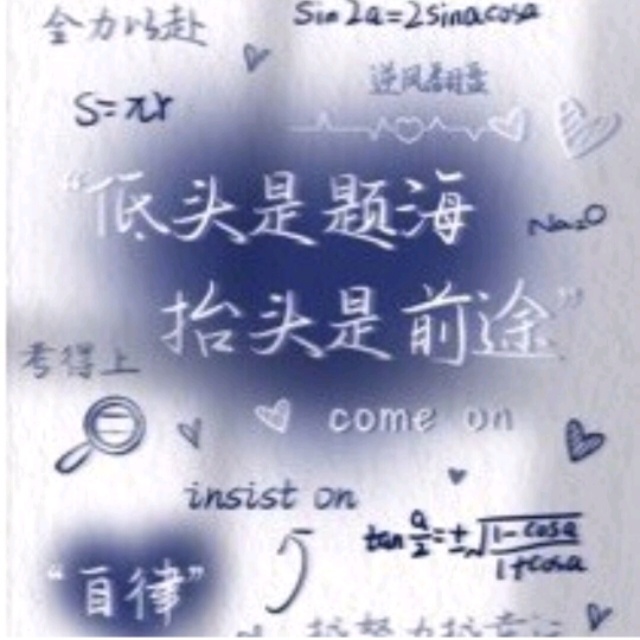 全力以赴
Sin2a=2sinacosa
逆风翻盘
S=πr
“低头是题海
Na₂O
抬头是前途”
考得上
come on
insist on
tan a/2=±√(1-cosa/1+cosa)
“自律”